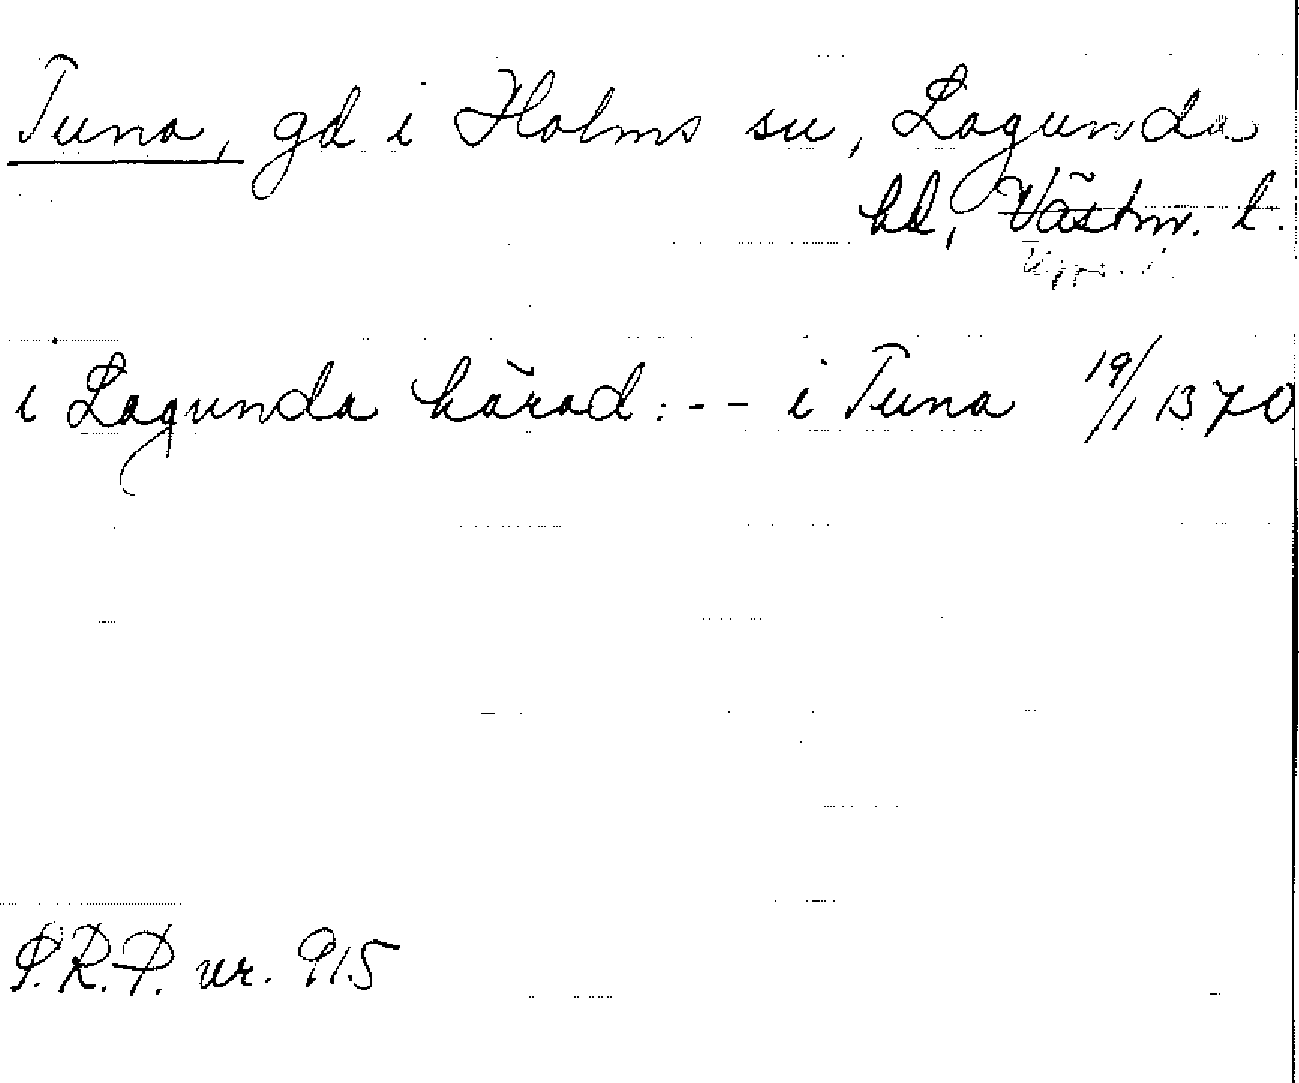 Tuna, gd i Holms sn, Lagunda
hd, Västm. l.
Upps. l.
i Lagunda härad: - - i Tuna 19/1 1370
S.R.P. nr. 915